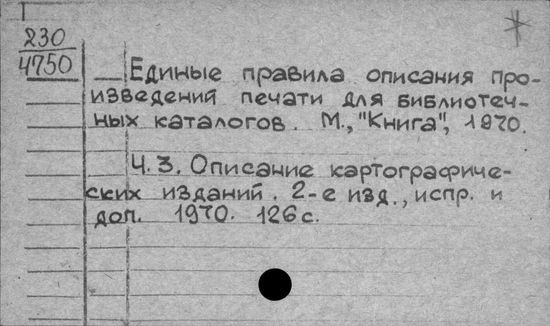 230
4750
Единые правила описания про-
изведений печати для библиотеч-
ных каталогов. М., "Книга", 1970.
Ч. 3. Описание картографиче-
ских изданий. 2-е изд., испр. и
доп. 1970. 126 с.